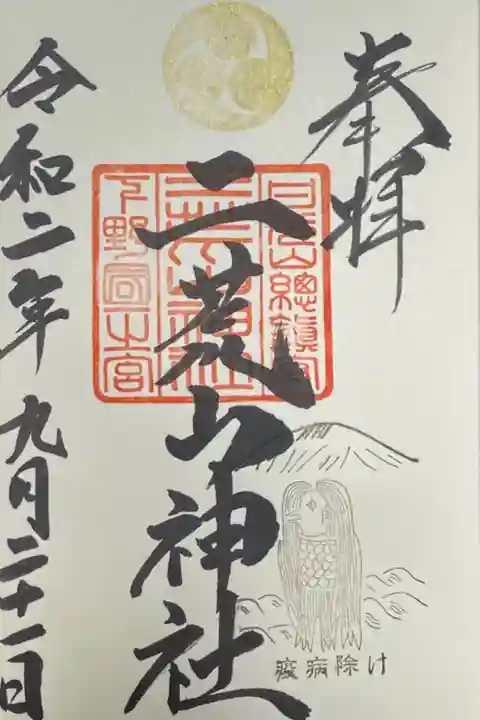 奉拝
二荒山神社
令和二年九月二十一日
下野國一之宮
疫病除け